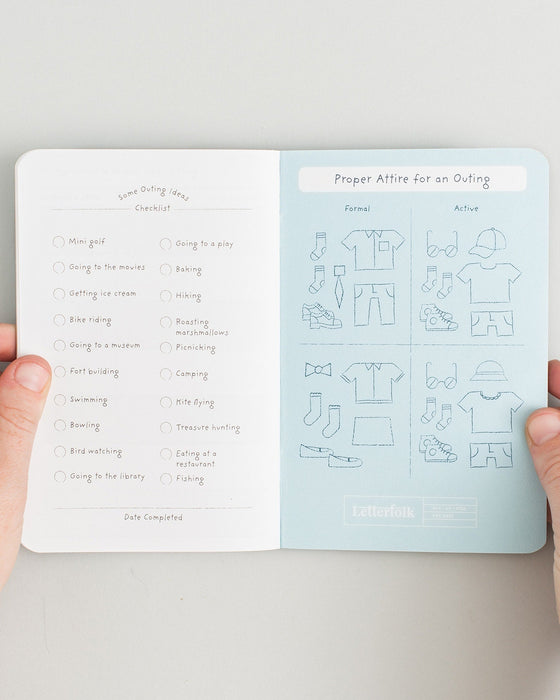 Some Outing Ideas
Checklist
Mini golf
Going to the movies
Getting ice cream
Bike riding
Going to a museum
Fort building
Swimming
Bowling
Bird watching
Going to the library
Going to a play
Baking
Hiking
Roasting
marshmallows
Picnicking
Camping
Kite flying
Treasure hunting
Eating at a
restaurant
Fishing
Date Completed
Proper Attire for an Outing
Formal
Active
Letterfolk